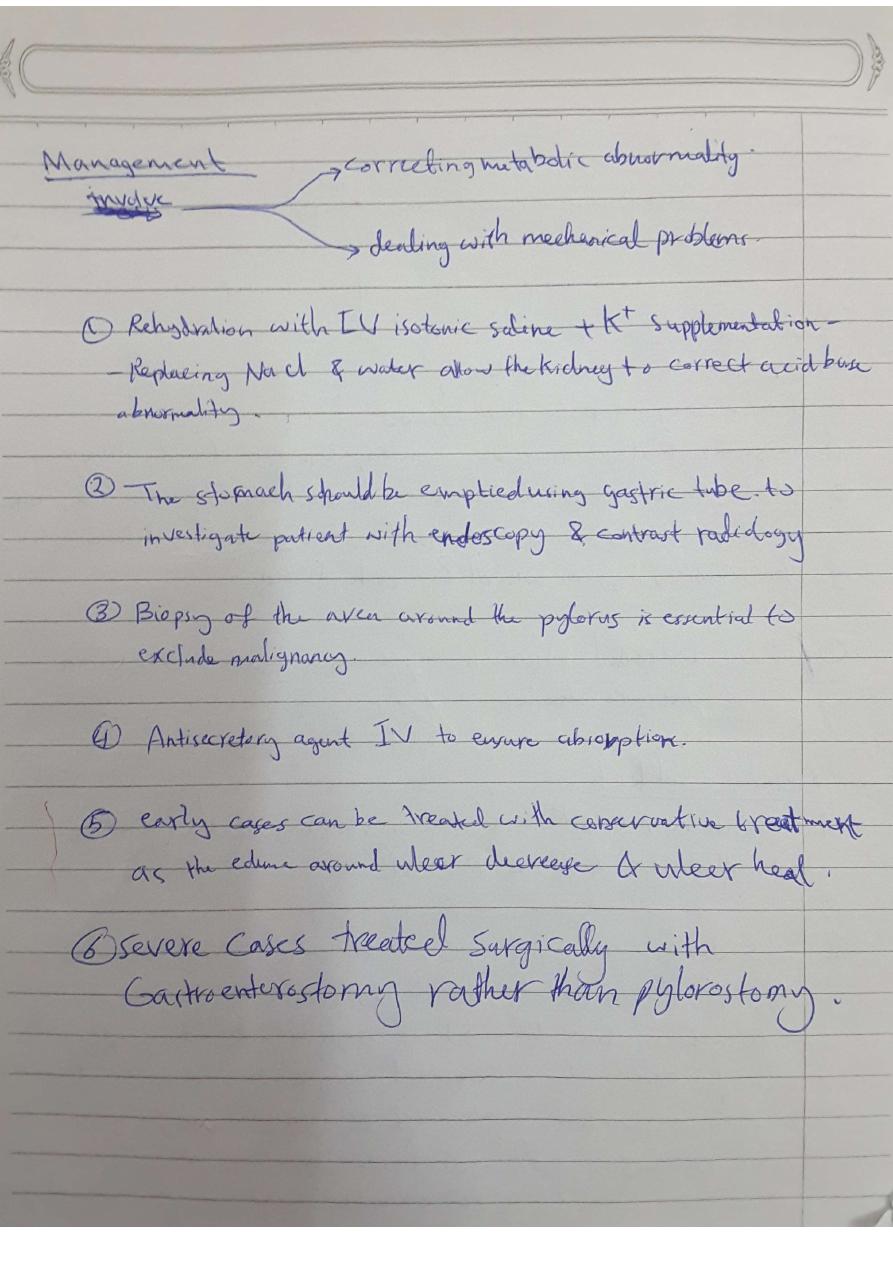 Management
involve → correcting metabolic abnormality.
→ dealing with mechanical problems.
① Rehydration with IV isotonic saline + K⁺ supplementation -
- Replacing NaCl & water allow the kidney to correct acid base
abnormality.
② The stomach should be emptied using gastric tube. to
investigate patient with endoscopy & contrast radiology
③ Biopsy of the area around the pylorus is essential to
exclude malignancy.
④ Antisecretory agent IV to ensure absorption.
⑤ early cases can be treated with conservative treatment
as the edema around ulcer decrease & ulcer heal.
⑥ severe cases treated surgically with
Gastroenterostomy rather than pylorostomy.